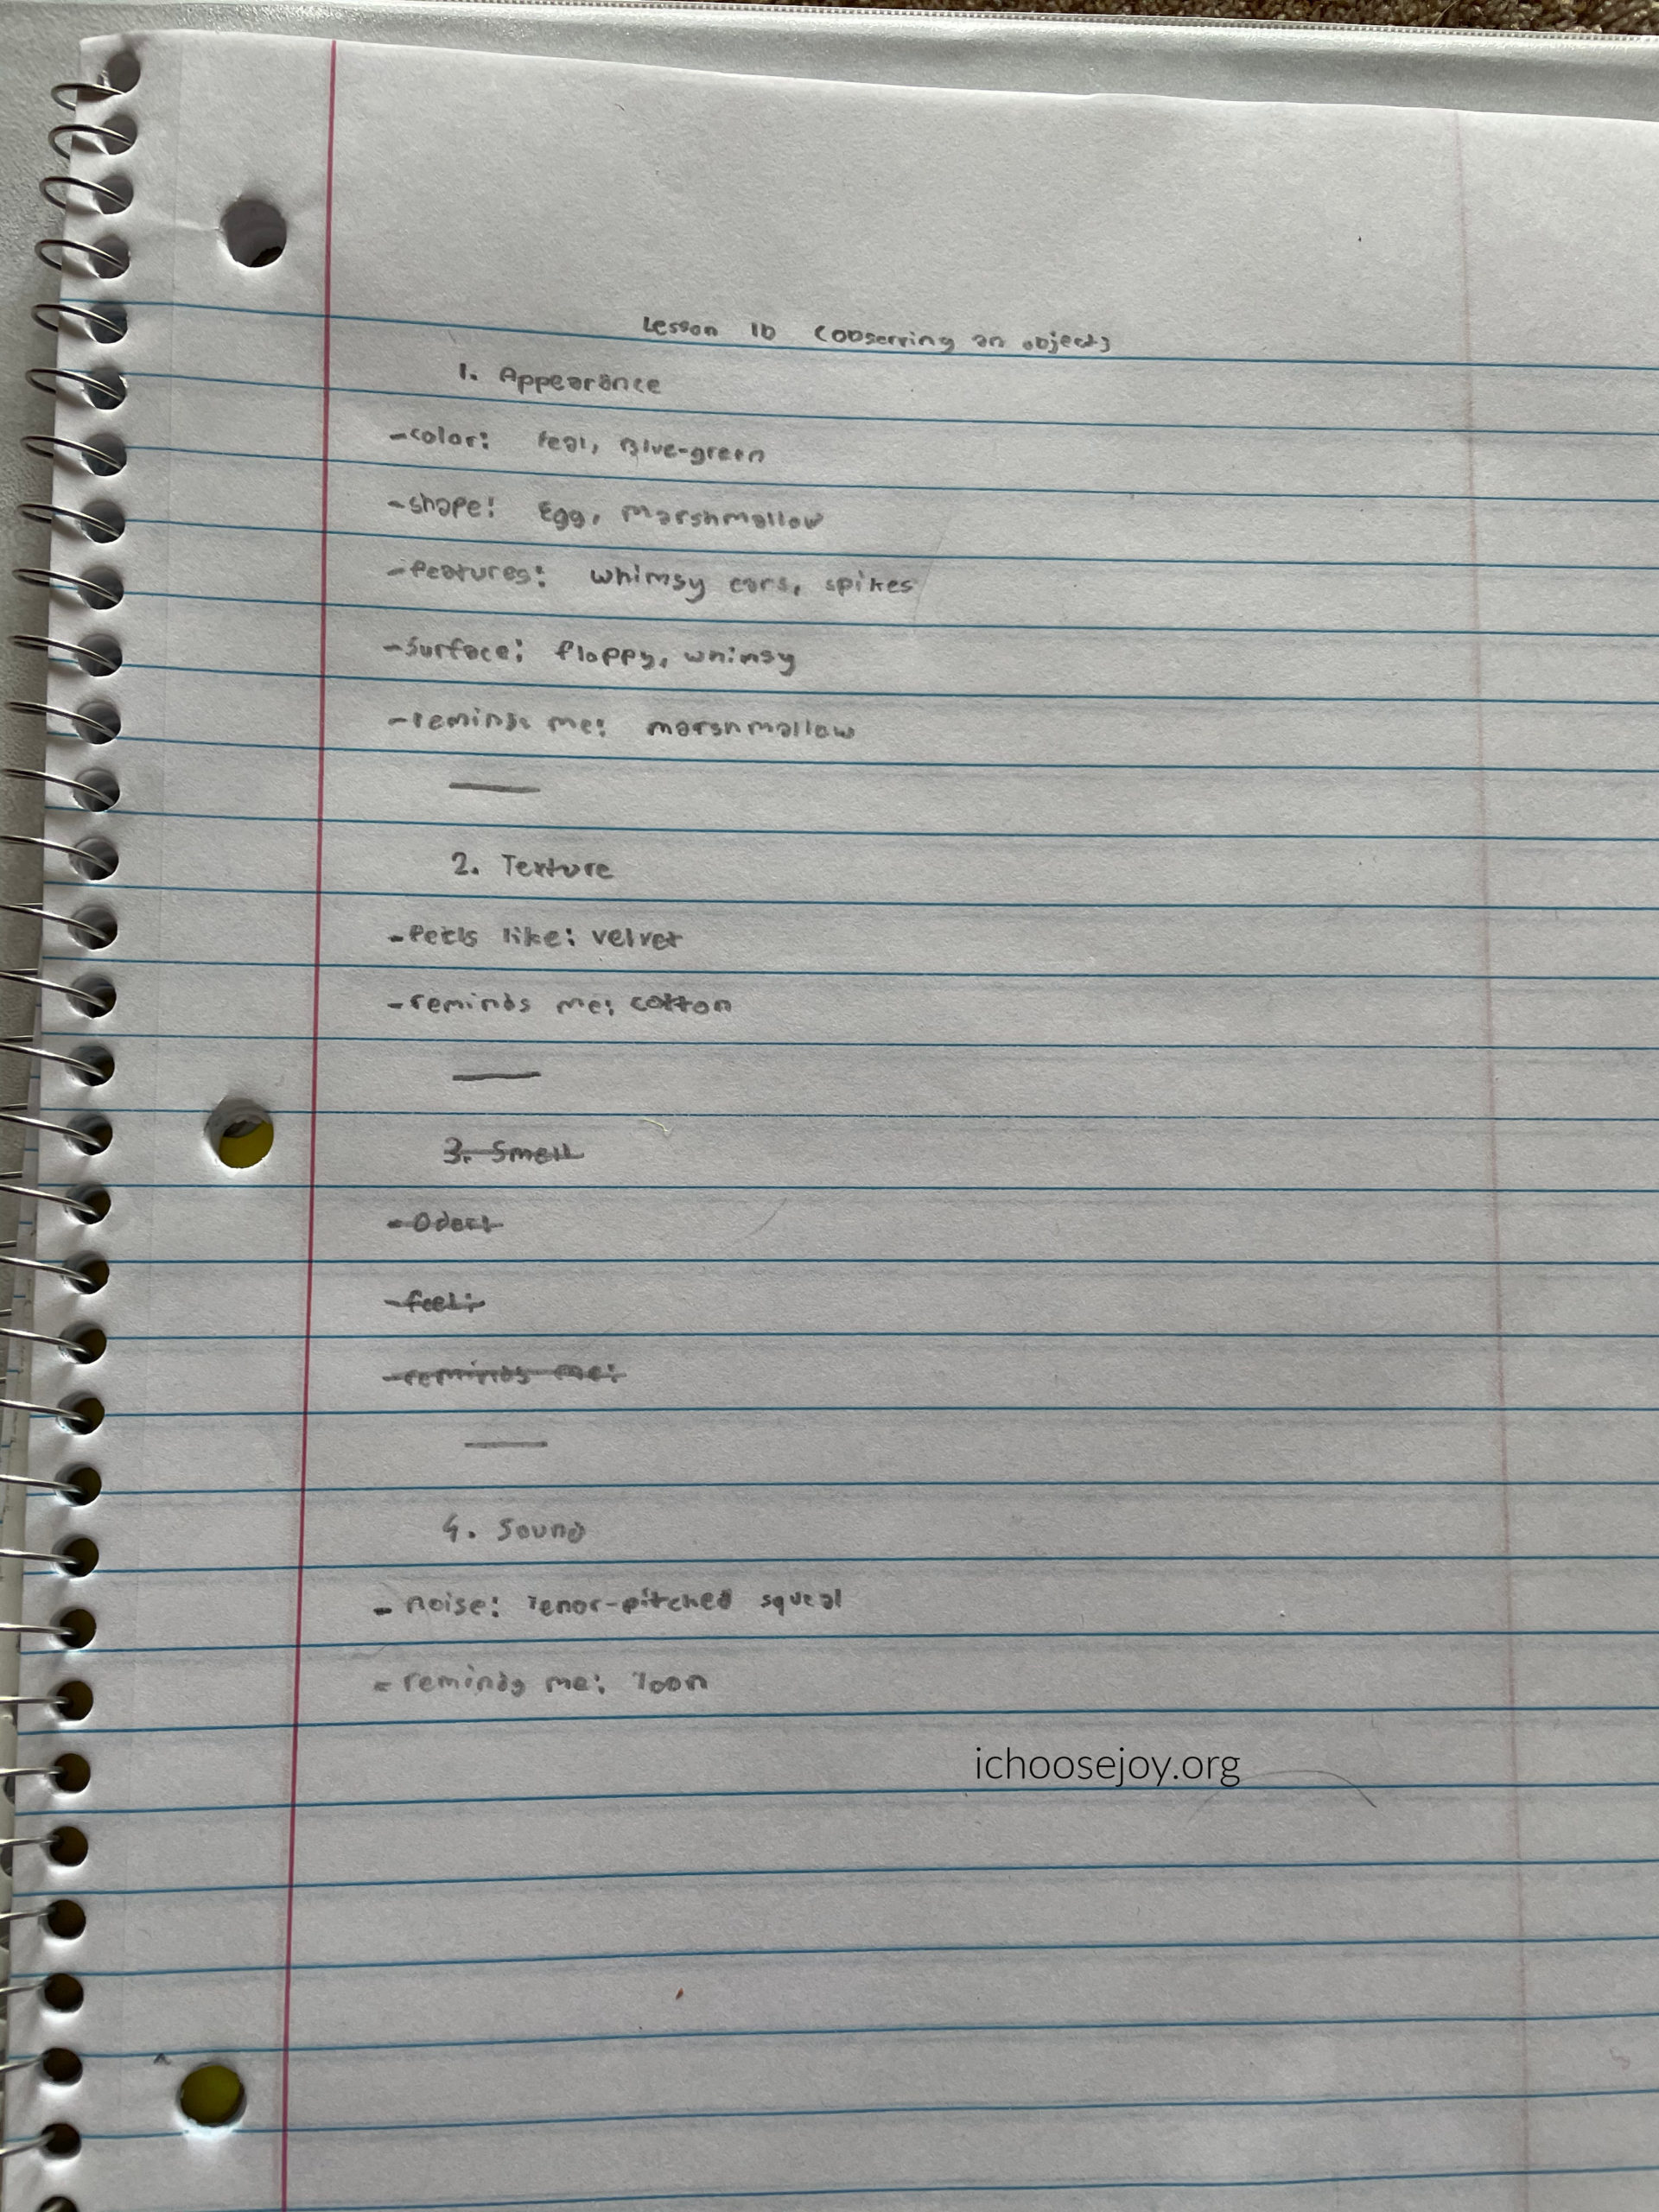 Lesson 1b (observing an object)
1. Appearance
- color: Teal, Blue-green
- shape: Egg, Marshmallow
- features: whimsy ears, spikes
- surface: floppy, whimsy
- reminds me: marshmallow
2. Texture
- feels like: velvet
- reminds me: cotton
3. Smell
- Odor:
- feel:
- reminds me:
4. Sound
- noise: Tenor-pitched squeal
- reminds me: Toon
ichoosejoy.org